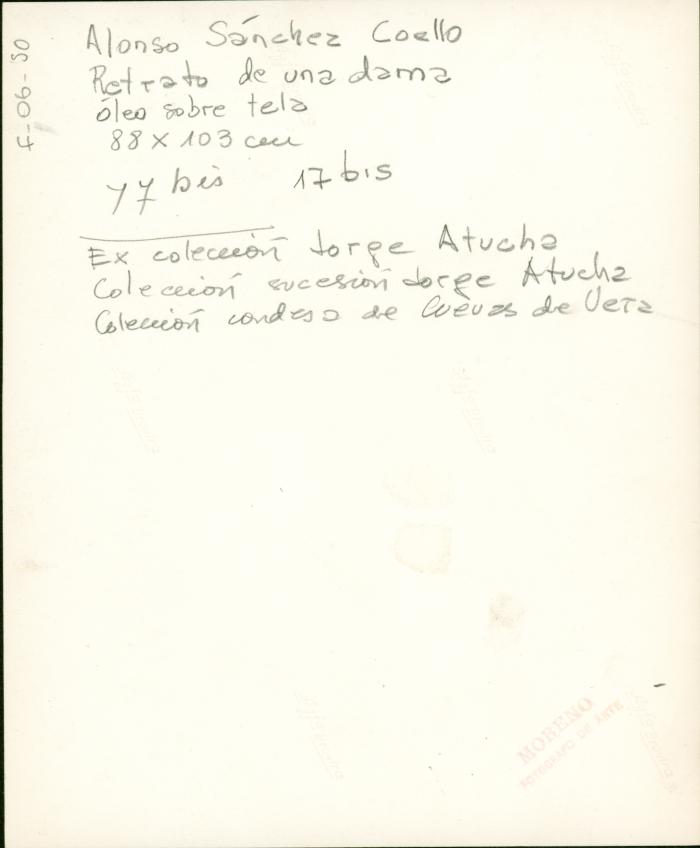 4-06-50
Alonso Sánchez Coello
Retrato de una dama
óleo sobre tela
88 x 103 cm
77 bis 17 bis
Ex colección Jorge Atucha
Colección sucesión Jorge Atucha
Colección condesa de Cuevas de Vera
MORENO
FOTOGRAFO DE ARTE